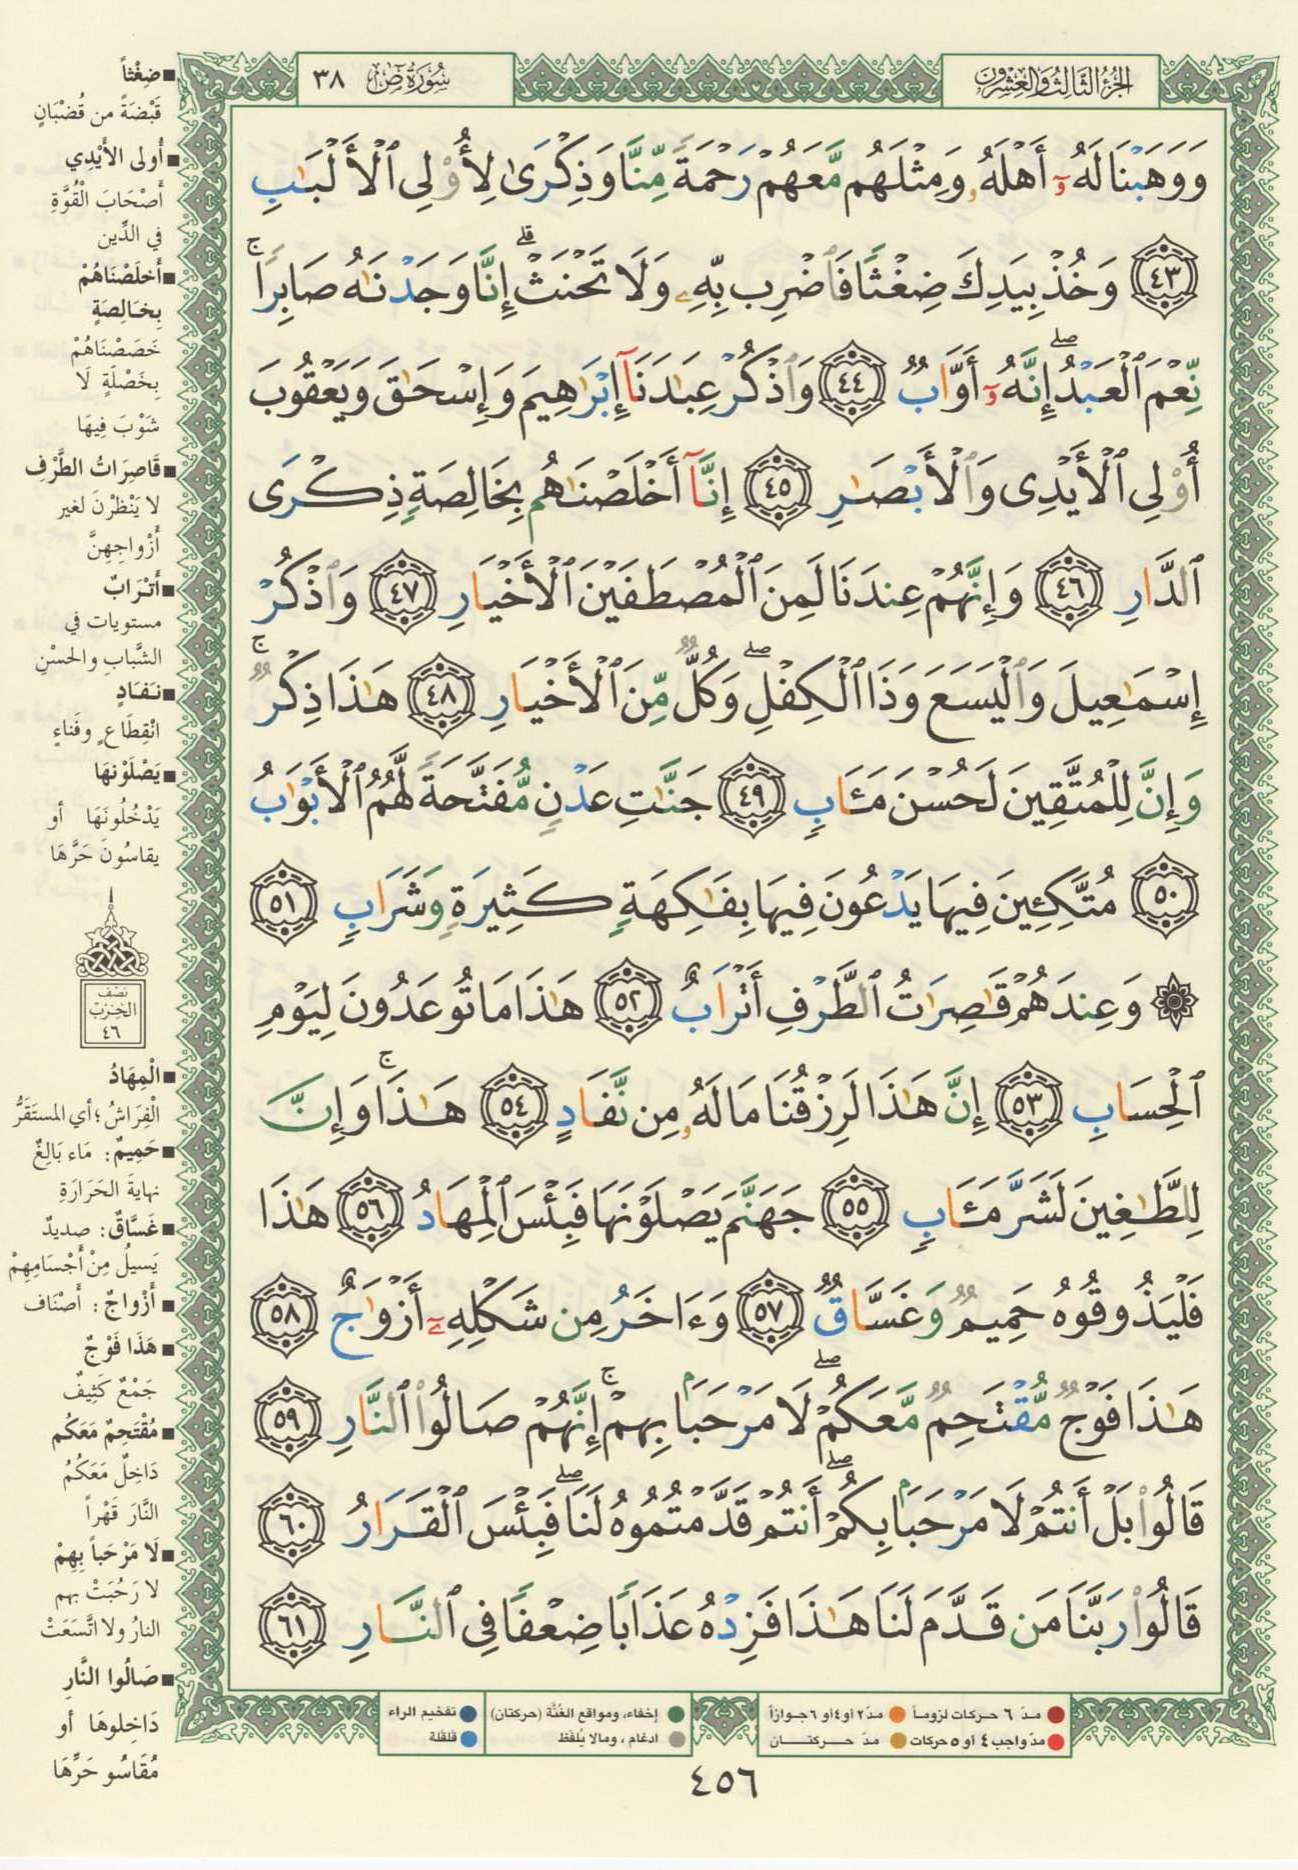 الجزء الثالث والعشرون
سورة ص ٣٨
وَوَهَبْنَا لَهُۥٓ أَهْلَهُۥ وَمِثْلَهُم مَّعَهُمْ رَحْمَةً مِّنَّا وَذِكْرَىٰ لِأُو۟لِى ٱلْأَلْبَـٰبِ
٤٣ وَخُذْ بِيَدِكَ ضِغْثًا فَٱضْرِب بِّهِۦ وَلَا تَحْنَثْ ۗ إِنَّا وَجَدْنَـٰهُ صَابِرًا ۚ
نِّعْمَ ٱلْعَبْدُ ۖ إِنَّهُۥٓ أَوَّابٌ ٤٤ وَٱذْكُرْ عِبَـٰدَنَآ إِبْرَٰهِيمَ وَإِسْحَـٰقَ وَيَعْقُوبَ
أُو۟لِى ٱلْأَيْدِى وَٱلْأَبْصَـٰرِ ٤٥ إِنَّآ أَخْلَصْنَـٰهُم بِخَالِصَةٍ ذِكْرَى
ٱلدَّارِ ٤٦ وَإِنَّهُمْ عِندَنَا لَمِنَ ٱلْمُصْطَفَيْنَ ٱلْأَخْيَارِ ٤٧ وَٱذْكُرْ
إِسْمَـٰعِيلَ وَٱلْيَسَعَ وَذَا ٱلْكِفْلِ ۖ وَكُلٌّ مِّنَ ٱلْأَخْيَارِ ٤٨ هَـٰذَا ذِكْرٌ ۚ
وَإِنَّ لِلْمُتَّقِينَ لَحُسْنَ مَـَٔابٍ ٤٩ جَنَّـٰتِ عَدْنٍ مُّفَتَّحَةً لَّهُمُ ٱلْأَبْوَٰبُ
٥٠ مُتَّكِـِٔينَ فِيهَا يَدْعُونَ فِيهَا بِفَـٰكِهَةٍ كَثِيرَةٍ وَشَرَابٍ ٥١
۞ وَعِندَهُمْ قَـٰصِرَٰتُ ٱلطَّرْفِ أَتْرَابٌ ٥٢ هَـٰذَا مَا تُوعَدُونَ لِيَوْمِ
ٱلْحِسَابِ ٥٣ إِنَّ هَـٰذَا لَرِزْقُنَا مَا لَهُۥ مِن نَّفَادٍ ٥٤ هَـٰذَا ۚ وَإِنَّ
لِلطَّـٰغِينَ لَشَرَّ مَـَٔابٍ ٥٥ جَهَنَّمَ يَصْلَوْنَهَا فَبِئْسَ ٱلْمِهَادُ ٥٦ هَـٰذَا
فَلْيَذُوقُوهُ حَمِيمٌ وَغَسَّاقٌ ٥٧ وَءَاخَرُ مِن شَكْلِهِۦٓ أَزْوَٰجٌ ٥٨
هَـٰذَا فَوْجٌ مُّقْتَحِمٌ مَّعَكُمْ ۖ لَا مَرْحَبًۢا بِهِمْ ۚ إِنَّهُمْ صَالُوا۟ ٱلنَّارِ ٥٩
قَالُوا۟ بَلْ أَنتُمْ لَا مَرْحَبًۢا بِكُمْ ۖ أَنتُمْ قَدَّمْتُمُوهُ لَنَا ۖ فَبِئْسَ ٱلْقَرَارُ ٦٠
قَالُوا۟ رَبَّنَا مَن قَدَّمَ لَنَا هَـٰذَا فَزِدْهُ عَذَابًا ضِعْفًا فِى ٱلنَّارِ ٦١
■ ضِغْثاً
قَبْضَةً من قُضْبَانٍ
■ أُولي الأَيْدِي
أَصْحَابَ الْقُوَّةِ
في الدِّين
■ أَخلَصْنَاهُمْ
بِخَالِصَةٍ
خَصَصْنَاهُمْ
بِخَصْلَةٍ لَا
شَوْبَ فِيهَا
■ قَاصِرَاتُ الطَّرْفِ
لا يَنْظُرْنَ لغير
أَزْواجِهِنَّ
■ أَتْرَابٌ
مستويات في
الشَّبابِ والحسْنِ
■ نَفَادٍ
انْقِطَاعٍ وفَناءٍ
■ يَصْلَوْنهَا
يَدْخُلُونَهَا أو
يقاسُونَ حَرَّهَا
نصف
الحزب
٤٦
■ الْمِهَادُ
الْفِرَاشُ؛ أي المستَقَرُّ
■ حَمِيمٌ: مَاء بَالِغٌ
نهايةَ الحَرَارَةِ
■ غَسَّاقٌ: صديدٌ
يَسيلُ مِنْ أَجْسَامِهِمْ
■ أَزْواجٌ: أَصْنَاف
■ هَذَا فَوْجٌ
جَمْعٌ كَثِيفٌ
■ مُقْتَحِمٌ مَعَكُم
دَاخِلٌ مَعَكُمْ
النَّارَ قَهْراً
■ لَا مَرْحَباً بِهِمْ
لا رَحُبَتْ بهم
النارُ ولا اتَّسَعَتْ
■ صَالُوا النَّارِ
دَاخِلوهَا أو
مُقَاسُو حَرِّهَا
مدّ ٦ حركات لزوماً
مدّ ٢ أو ٤ أو ٦ جوازاً
إخفاء، ومواقع الغُنَّة (حركتان)
تفخيم الراء
مدّ واجب ٤ أو ٥ حركات
مدّ حركتان
ادغام، ومالا يُلفَظ
قلقلة
٤٥٦